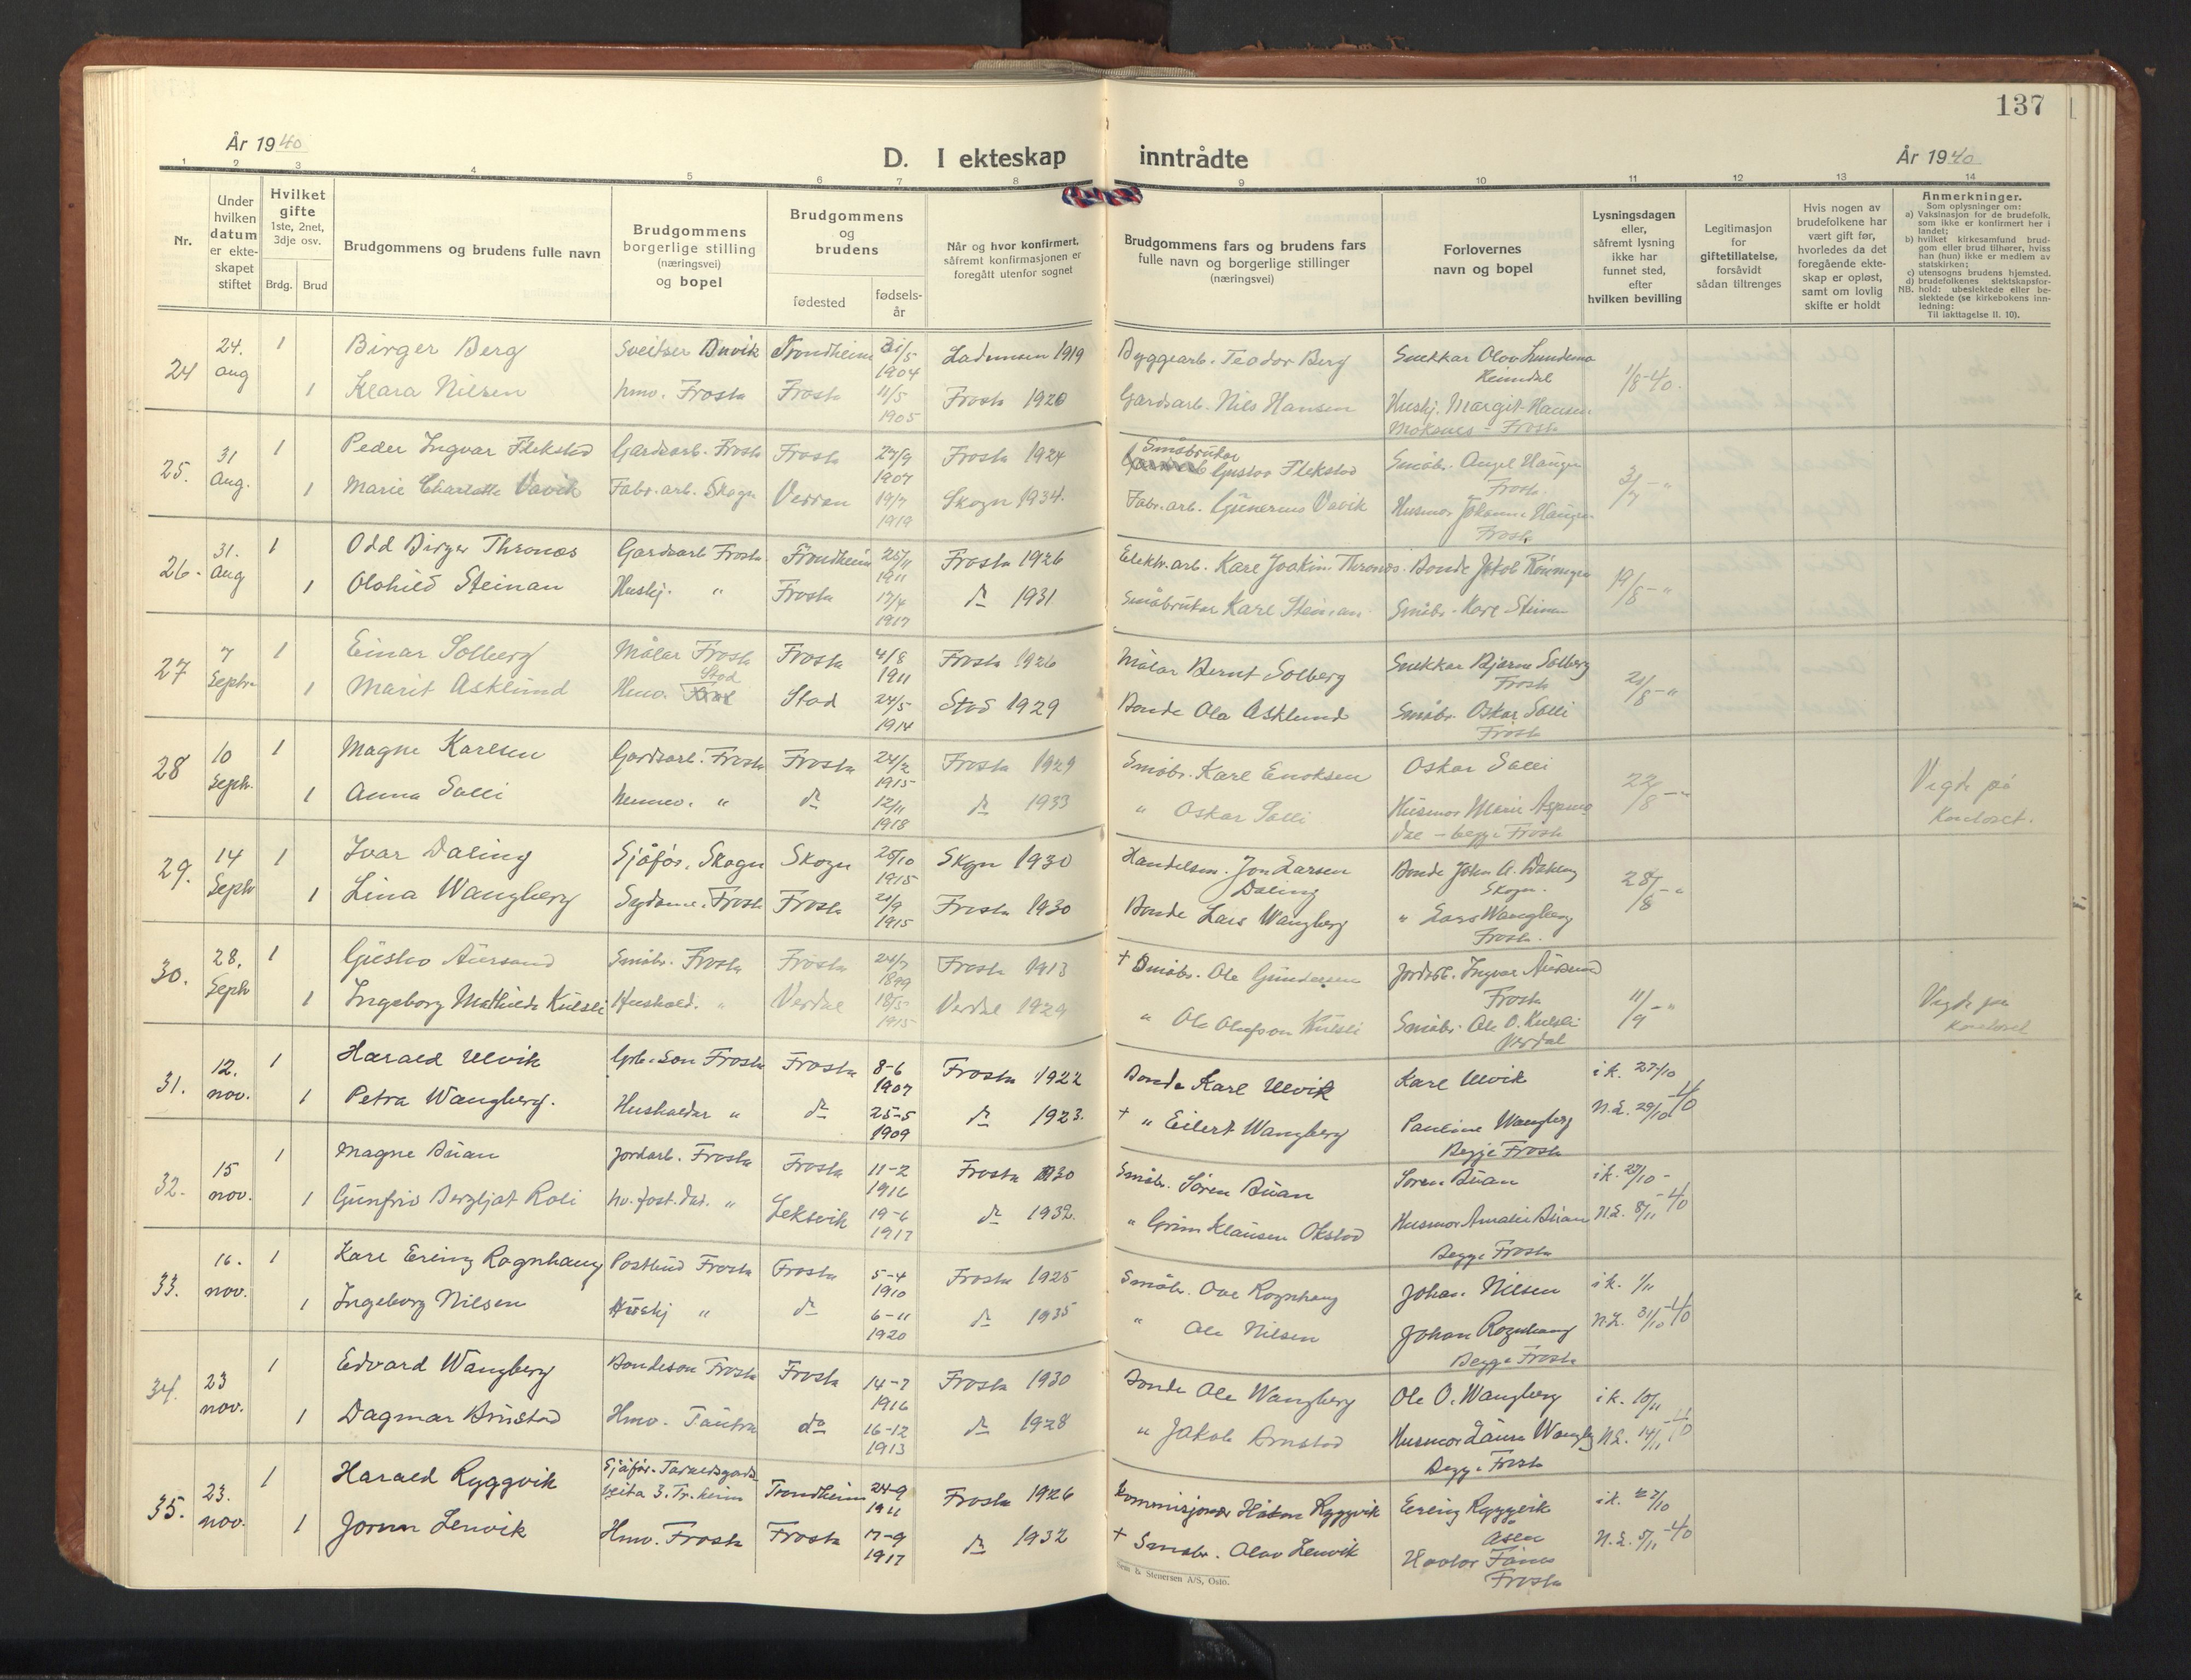 137
År 1940
D. I ekteskap inntrådte
År 1940
1 2 3 4 5 6 7 8 9 10 11 12 13 14
Nr.
Under hvilken datum er ekteskapet stiftet
Hvilket gifte 1ste, 2net, 3dje osv.
Brdg. Brud
Brudgommens og brudens fulle navn
Brudgommens borgerlige stilling (næringsvei) og bopel
Brudgommens og brudens
fødested fødsels-år
Når og hvor konfirmert, såfremt konfirmasjonen er foregått utenfor sognet
Brudgommens fars og brudens fars fulle navn og borgerlige stillinger (næringsvei)
Forlovernes navn og bopel
Lysningsdagen eller, såfremt lysning ikke har funnet sted, efter hvilken bevilling
Legitimasjon for giftetillatelse, forsåvidt sådan tiltrenges
Hvis nogen av brudefolkene har vært gift før, hvorledes da det foregående ekteskap er opløst, samt om lovlig skifte er holdt
Anmerkninger.
Som oplysninger om:
a) Vaksinasjon for de brudefolk, som ikke er konfirmert her i landet;
b) hvilket kirkesamfund brudgom eller brud tilhører, hviss han (hun) ikke er medlem av statskirken;
c) utensogns brudens hjemsted.
d) brudefolkenes slektskapsforhold: ubeslektede eller beslektede (se kirkebokens innledning:
NB.
Til iakttagelse II. 10).
24 24. aug 1 Birger Berg Sveitser Buvik Trondheim 31/5 1904 Lademoen 1919 Byggearb. Teodor Berg Snekkar Olov Lundemo Heimdal 1/8-40.
1 Klara Nilsen hmv. Frosta Frosta 11/5 1905 Frosta 1920 Gardsarb. Nils Hansen Hushj. Margit Hansen Moksnes - Frosta
25. 31 Aug. 1 Peder Ingvar Flekstad Gardsarb. Frosta Frosta 27/9 1907 Frosta 1924 Småbrukar Gustav Flekstad Småbr. Angel Haugen Frosta
1 Marie Charlotte Vavik Fabr.arb. Skogn Verran 19/7 1919 Skogn 1934. Fabr.arb. Gunerius Vavik Husmor Johanna Haugen Frosta
26. 31. Aug 1 Odd Birger Thronæs Gardsarb Frosta Trondheim 25/11 1911 Frosta 1926 Elektr.arb. Karl Joakim Thronæs. Bonde Jakob Rønningen 19/8-"
1 Olohild Steinan Hushj. " Frosta 17/4 1917 do 1931 Småbrukar Karl Steinan Småbr. Karl Steinan
27 7 Septr. 1 Einar Solberg Målar Frosta Frosta 4/8 1911 Frosta 1926 Målar Bernt Solberg Snekkar Bjarne Solberg Frosta 21/8-"
1 Marit Asklund Hmv. Stod Stod 24/5 1914 Stod 1929 Bonde Ola Asklund Småbr. Oskar Salli Frosta
28 10 Septr. 1 Magne Karlsen Gardsarb. Frosta Frosta 24/2 1915 Frosta 1929 Småbr. Karl Enoksen Oskar Salli 22/8-" Vigde på Kontoret.
1 Anna Salli " do 12/11 1918 do 1933 " Oskar Salli Husmor Marie Aspmodal - begge Frosta
29. 14 Septr 1 Ivar Daling Sjåfør, Skogn Skogn 28/10 1915 Skogn 1930 Handelsm. Jon Larsen Daling Bonde John A. Daling Skogn. 28/8-"
1 Lina Wangberg Sydame. Frosta Frosta 21/9 1915 Frosta 1930 Bonde Lars Wangberg " Lars Wangberg Frosta.
30. 28. Septr 1 Gustav Aursand Småbr. Frosta Frosta 24/7 1899 Frosta 1913 + Småbr. Ole Gundersen Jordarb. Ingvar Aursand Frosta 11/9-" Vigde på kontoret
1 Ingeborg Mathilde Kulsli Hushold. " Verdal 18/5 1915 Verdal 1929 " Ole Olufson Kulsli Småbr. Ole O. Kulsli Verdal
31. 12. nov. 1 Harald Ulvik Grb.søn Frosta Frosta 8-6 1907 Frosta 1922 Bonde Karl Ulvik Karl Ulvik i k. 27/10
1 Petra Wangberg. Husholdar " do 25-5 1909 do 1923. + " Eilert Wangberg Pauline Wangberg Begge Frosta N.L. 29/10-40
32. 15 nov. 1 Magne Buan Jordarb. Frosta Frosta 11-2 1916 Frosta 1930 Småbr. Søren Buan Søren Buan i k. 27/10-
1 Gunfrid Bergljot Roli " Leksvik 19-6 1917 do 1932. " Grim Klausen Okstad Husmor Amalie Buan Begge Frosta N.L. 8/11-40
33. 16. nov. 1 Karl Erling Rognhaug Postbud Frosta Frosta 5-4 1910 Frosta 1925 Småbr. Ove Rognhaug Johan Nilsen i k. 1/11
1 Ingeborg Nilsen Hushj " do 6-11 1920 do 1935 " Ole Nilsen Johan Rognhaug Begge Frosta N.L. 31/10-40
34. 23 nov. 1 Edvard Wangberg Bondeson Frosta Frosta 14-7 1916 Frosta 1930 Bonde Ole Wangberg Ole O. Wangberg i k. 10/11
1 Dagmar Brustad Hmv. Tautra do 16-12 1913 do 1928 " Jakob Brustad Husmor Laura Wangberg Begge Frosta N.L. 14/11-40
35. 23. nov. 1 Harald Ryggvik Sjåfør. veita 3. Tr.heim Trondheim 24-9 1911 Frosta 1926 Kommisjonær Håkon Ryggvik Erling Ryggvik Åsen i k. 27/10
1 Jorun Lenvik Hmv. Frosta Frosta 17-9 1917 do 1932 + Småbr. Olav Lenvik Havtor Frosta N.L. 5/11-40
& Stenersen A/S, Oslo.